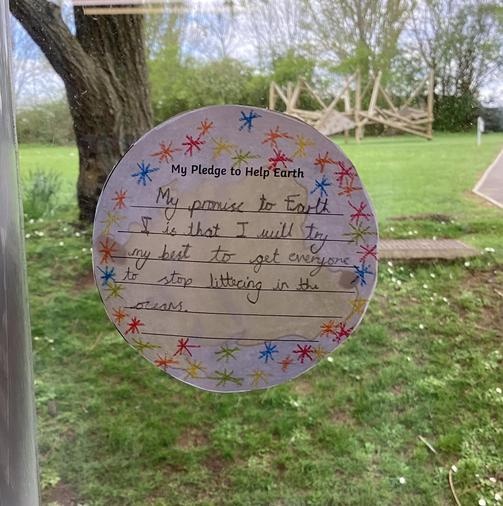 My Pledge to Help Earth
My promise to Earth
I is that I will try
my best to get everyone
to stop littering in the
oceans.